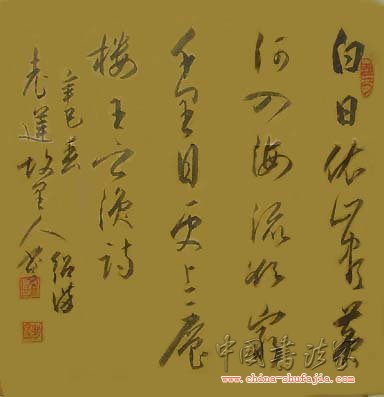 白日依山尽黄
河入海流欲穷
千里目更上一层
楼王之涣诗
辛巳
老莲故里人
中國書法家
www.china-shufajia.com